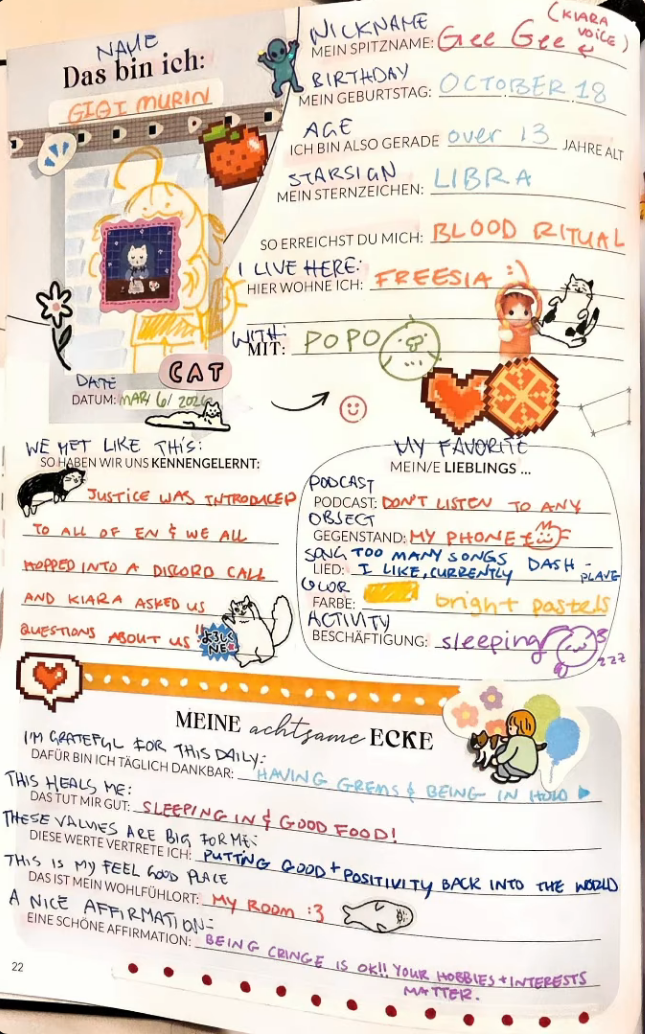 NAME
Das bin ich:
GIGI MURIN
CAT
DATE
DATUM: MAR/ 6/ 2026
NICKNAME
(KIARA VOICE)
MEIN SPITZNAME: Gee Gee
BIRTHDAY
MEIN GEBURTSTAG: OCTOBER 18
AGE
ICH BIN ALSO GERADE over 13 JAHRE ALT
STARSIGN
MEIN STERNZEICHEN: LIBRA
SO ERREICHST DU MICH: BLOOD RITUAL
I LIVE HERE:
HIER WOHNE ICH: FREESIA :)
WITH:
MIT: POPO
WE MET LIKE THIS:
SO HABEN WIR UNS KENNENGELERNT:
JUSTICE WAS INTRODUCED
TO ALL OF EN & WE ALL
HOPPED INTO A DISCORD CALL
AND KIARA ASKED US
QUESTIONS ABOUT US!!
よろしく
NE
MY FAVORITE
MEIN/E LIEBLINGS ...
PODCAST
PODCAST: DON'T LISTEN TO ANY
OBJECT
GEGENSTAND: MY PHONE
SONG TOO MANY SONGS
LIED: I LIKE, CURRENTLY DASH - PLAVE
COLOR
FARBE: bright pastels
ACTIVITY
BESCHÄFTIGUNG: sleeping
zzz
MEINE achtsame ECKE
I'M GRATEFUL FOR THIS DAILY:
DAFÜR BIN ICH TÄGLICH DANKBAR: HAVING GREMS & BEING IN HOLO
THIS HEALS ME:
DAS TUT MIR GUT: SLEEPING IN & GOOD FOOD!
THESE VALUES ARE BIG FOR ME:
DIESE WERTE VERTRETE ICH: PUTTING GOOD + POSITIVITY BACK INTO THE WORLD
THIS IS MY FEEL GOOD PLACE
DAS IST MEIN WOHLFÜHLORT: MY ROOM :3
A NICE AFFIRMATION:
EINE SCHÖNE AFFIRMATION: BEING CRINGE IS OK!! YOUR HOBBIES + INTERESTS
MATTER.
22